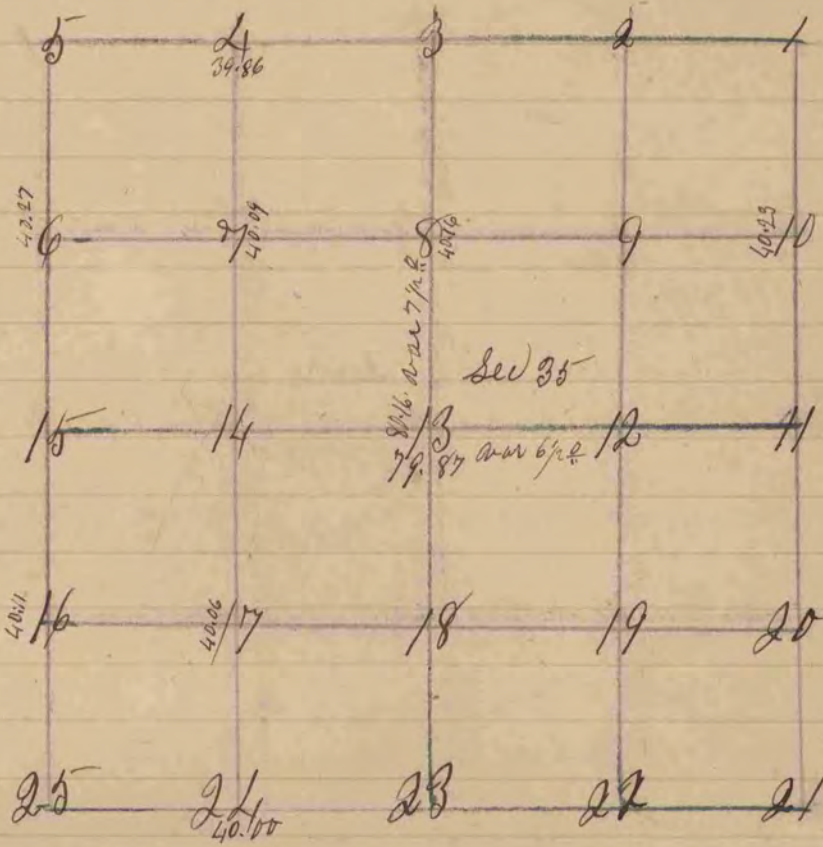 5 4 3 2 1
39.86
40.27 6 7 40.09 8 40.16 9 40.23 10
80.16 var 7½°
Sec 35
15 14 13 12 11
79.87 var 6½°
40.11 16 40.06 17 18 19 20
25 24 23 22 21
40.00